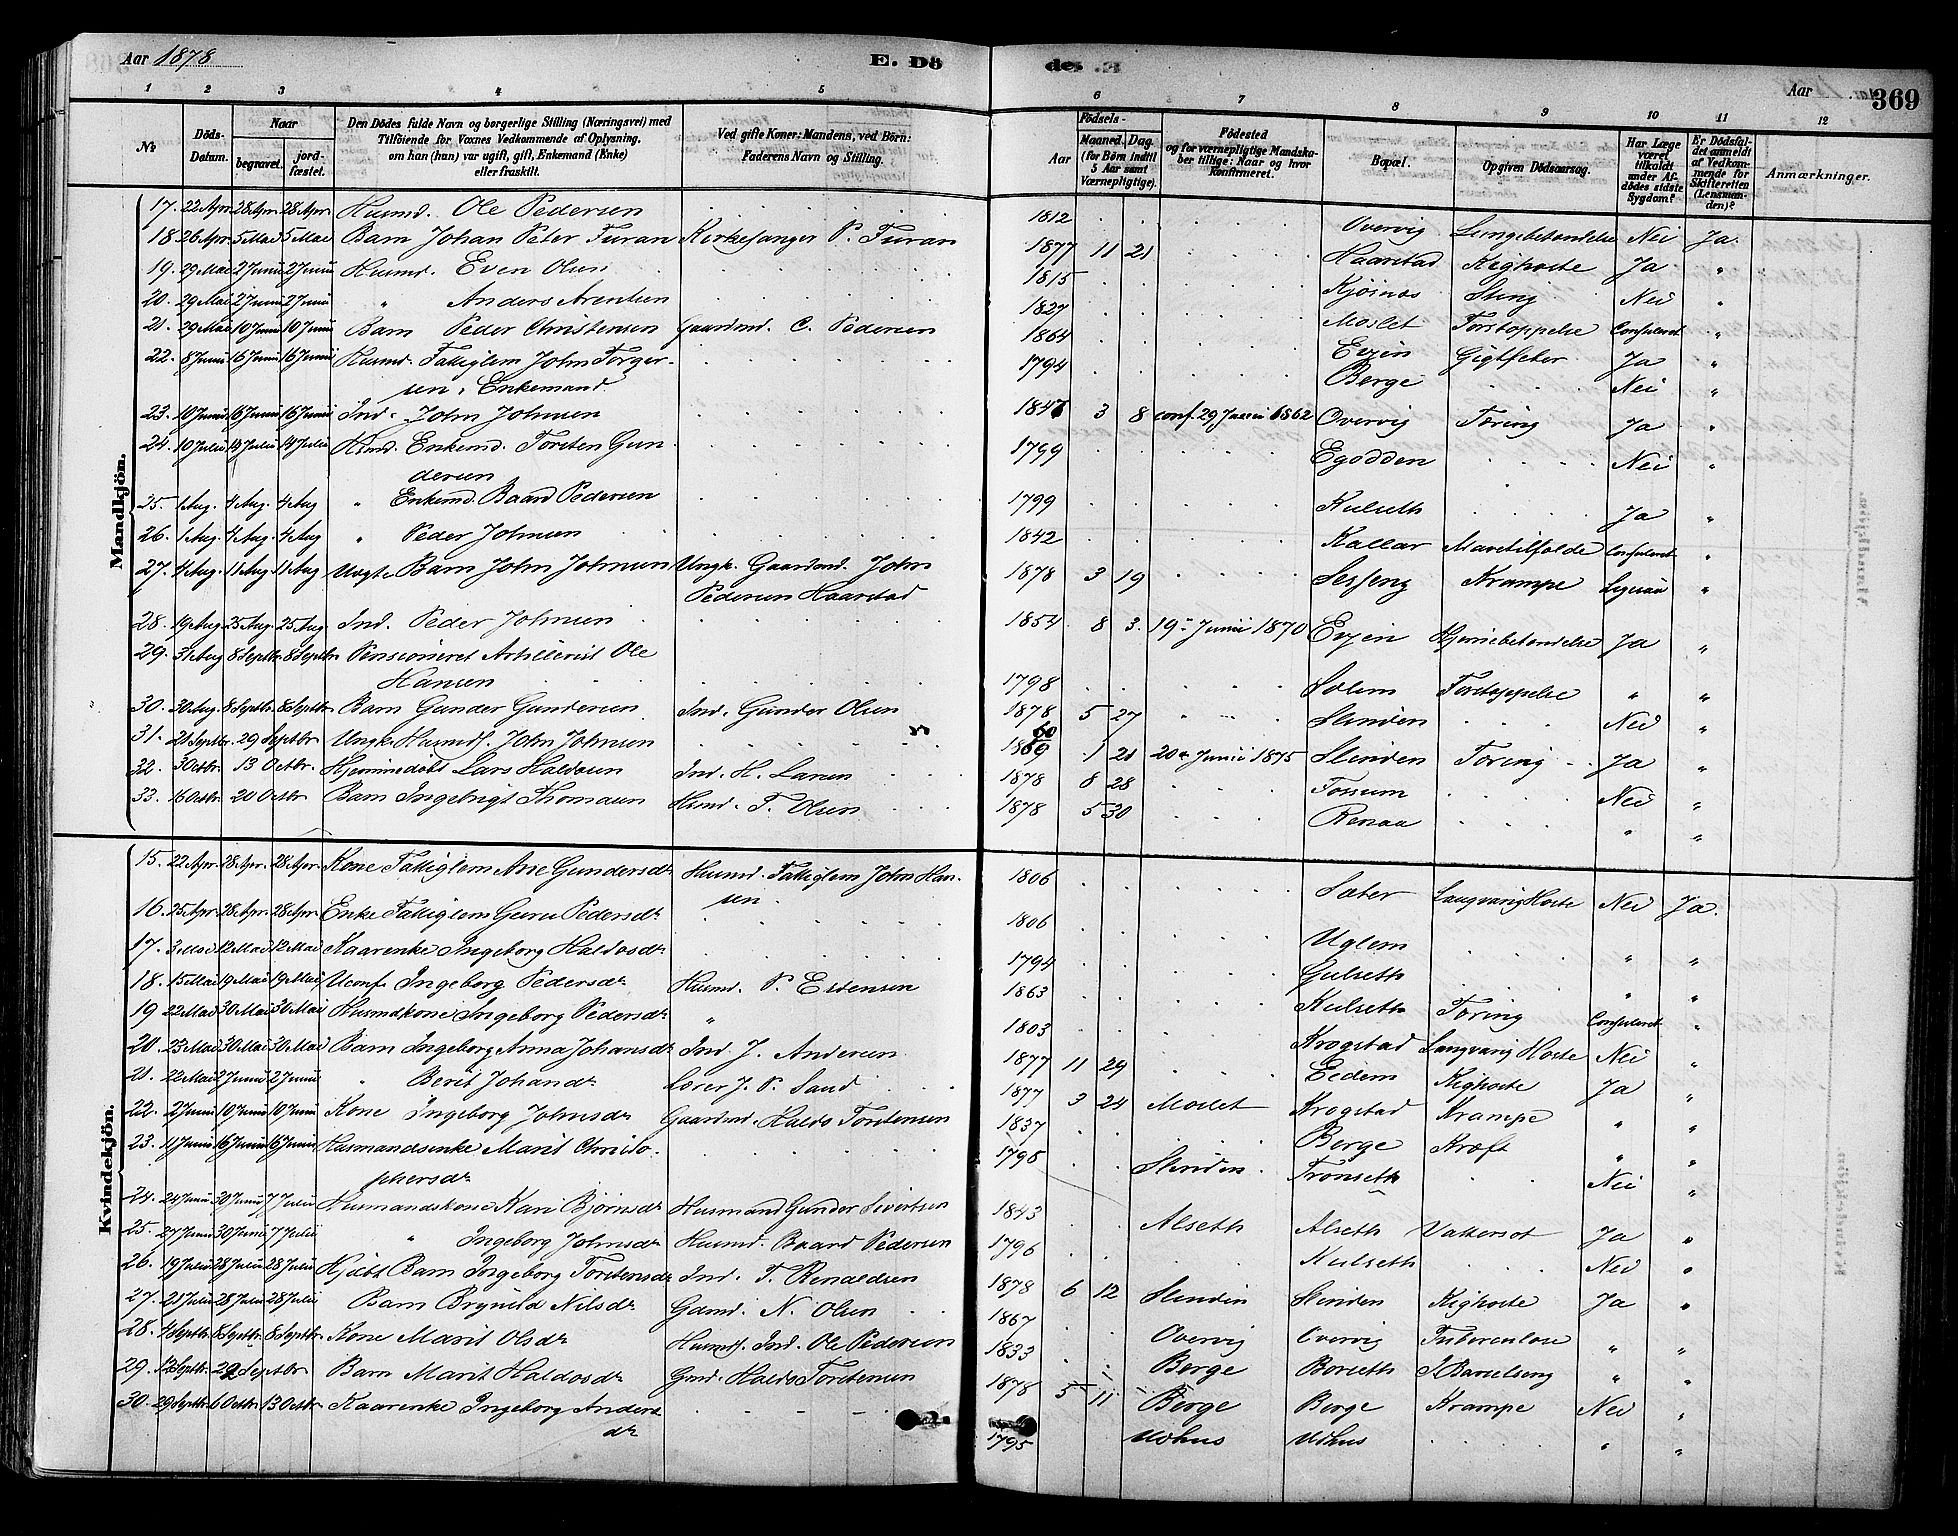 Aar 1878
E. Dö
de. .E
Aar
369
1 2 3 4 5 6 7 8 9 10 11 12
No
Döds-Datum.
Naar
begravet.
jord-fæstet.
Den Dödes fulde Navn og borgerlige Stilling (Næringsvei) med
Tilföiende for Voxnes Vedkommende af Oplysning.
om han (hun) var ugift, gift, Enkemand (Enke)
eller fraskilt.
Ved gifte Koner: Mandens, ved Börn:
Faderens Navn og Stilling.
Födsels-
Aar
Maaned. Dag.
(for Börn indtil 5 Aar samt Værnepligtige).
Födested
og for værnepligtige Mandska-
ber tillige: Naar og hvor
konfirmeret.
Bopæl.
Opgiven Dödsaarsag.
Har Læge været tilkaldt under Af-dödes sidste Sygdom?
Er Dödsfal-det anmeldt af Vedkom-mende for Skifteretten (Lensman-den)?
Anmærkninger.
Mandkjön.
17. 22 Apr 28 Apr. 28 Apr Husmd. Ole Pedersen 1812 Overvig Lungebetændelse Nei Ja.
18 26 Apr. 5 Mai 5 Mai Barn Johan Peter Furan Kirkesanger P. Furan 1877 11 21 Haarstad Kighoste Ja "
19. 29 Mai 2 Junii 2 Junii Husmd. Even Olsen 1815 Kjösnæs Sting Nei "
20. 29 Mai 2 Junii 2 Junii " Anders Arentsen 1827 Moslet Forstoppelse Consuleret "
21. 29 Mai 10 Junii 10 Junii Barn Peder Christensen Gaardmd. C. Pedersen 1864 Evjen Gigtfeber Ja "
22. 8 Junii 16 Junii 16 Junii Husmd. Fattiglem John Torger-
sen, Enkemand 1794 Berge Nei "
23. 10 Junii 16 Junii 16 Junii Ind. John Johnsen 1847 3 8 conf. 29 Junii 1862 Overvig Tæring Ja "
24. 10 Julii 14 Julii 14 Julii Hsmd. Enkemd. Torsten Gun-
dersen 1799 Egodden Nei "
25. 1 Aug. 4 Aug. 4 Aug " Enkemd. Baard Pedersen 1799 Kulseth Ja "
26. 1 Aug. 4 Aug. 4 Aug " Peder Johnsen 1842 Kallar Mavetilfælde Consuleret "
27. 4 Aug. 11 Aug 11 Aug Uægte Barn John Johnsen Ungk. Gaardmd. John
Pedersen Haarstad 1878 3 19 Sesseng Krampe "
28. 19 Aug. 25 Aug. 25 Aug Ind. Peder Johnsen 1854 8 3. 19de Junii 1870 Evjen Hjernebetændelse Ja "
29. 31 Aug 8 Septbr. 8 Septbr. Pensioneret Artillerist Ole
Hansen 1798 Solem Forstoppelse " "
30. 30 Aug. 8 Septbr 8 Septbr. Barn Gunder Gundersen Ind. Gunder Olsen 1878 5 27 Slinden Nei "
31. 21 Septbr. 29 Septbr Ungk. Husmds. John Johnsen 1860 1 21 20de Junii 1875 Slinden Tæring Ja "
32. 3 Octbr. 13 Octbr. Hjemmedöbt Lars Haldosen Ind. H. Larsen 1878 8 28 Fossum Nei "
33. 16 Octbr. 20 Octbr Barn Ingebrigt Thomasen Husmd. T. Olsen 1878 5 30 Renaa " "
Kvindekjön.
15. 22 Apr. 28 Apr. 28 Apr. Kone Fattiglem Ane Gundersdr Husmd. Fattiglem John Han-
sen. 1806 Sæter Langvarig Hoste Nei Ja.
16. 25 Apr. 28 Apr. 28 Apr. Enke Fattiglem Guru Pedersdr 1806 Uglem " "
17. 3 Mai 12 Mai 12 Mai Kaarenke Ingeborg Haldosdr 1794 Gulseth " "
18. 15 Mai 19 Mai 19 Mai Uconf. Ingeborg Pedersdr Husmd. P. Estensen 1863 Kulseth Tæring Consuleret "
19 22 Mai 30 Mai 30 Mai Husmdkone Ingeborg Pedersdr " 1803 Krogstad Langvarig Hoste Nei "
20. 23 Mai 30 Mai 30 Mai Barn Ingeborg Anna Johansdr Ind. J. Andersen 1877 11 29 Eidem Kighoste Ja "
21. 22 Mai 2 Junii 2 Junii " Berit Johansdr Lærer J. P. Sand 1877 3 24 Moslet Krogstad Krampe " "
22. 2 Junii 10 Junii 10 Junii Kone Ingeborg Johnsdr Gaardmd. Haldo Torstensen 1837 Berge Kræft " "
23. 11 Junii 16 Junii 16 Junii Husmandsenke Marit Christo-
phersdr 1795 Slinden. Trönseth Nei "
24. 24 Junii 30 Junii 7 Julii Husmandskone Kari Björnsdr Husmand Gundor Sivertsen 1843 Alseth Alseth Vattersot Ja "
25. 27 Junii 30 Junii 7 Julii " Ingeborg Johnsdr Husmd. Baard Pedersen 1796 Kulseth Nei "
26. 19 Julii 28 Julii 28 Julii Hjdöbt Barn Ingeborg Torstensdr Ind. T. Renaldsen 1878 6 12 Slinden Slinden Kighoste Ja "
27. 21 Julii 28 Julii 28 Julii Barn Brynild Nilsdr Gdmd. N. Olsen 1867 Overvig Overvig Tuberculose " "
28. 4 Septbr. 8 Septbr. 8 Septbr. Kone Marit Olsdr Husmds. Ind. Ole Pedersen 1833 Berge Borseth I Barselseng " "
29. 12 Septbr. 22 Septbr Barn Marit Haldosdr Gmd. Haldo Torstensen 1878 5 11 Berge Berge Krampe Nei "
30. 29 Septbr. 6 Octbr. 13 Octbr. Kaarenke Ingeborg Anders
dr 1795 Udhus Udhus " "